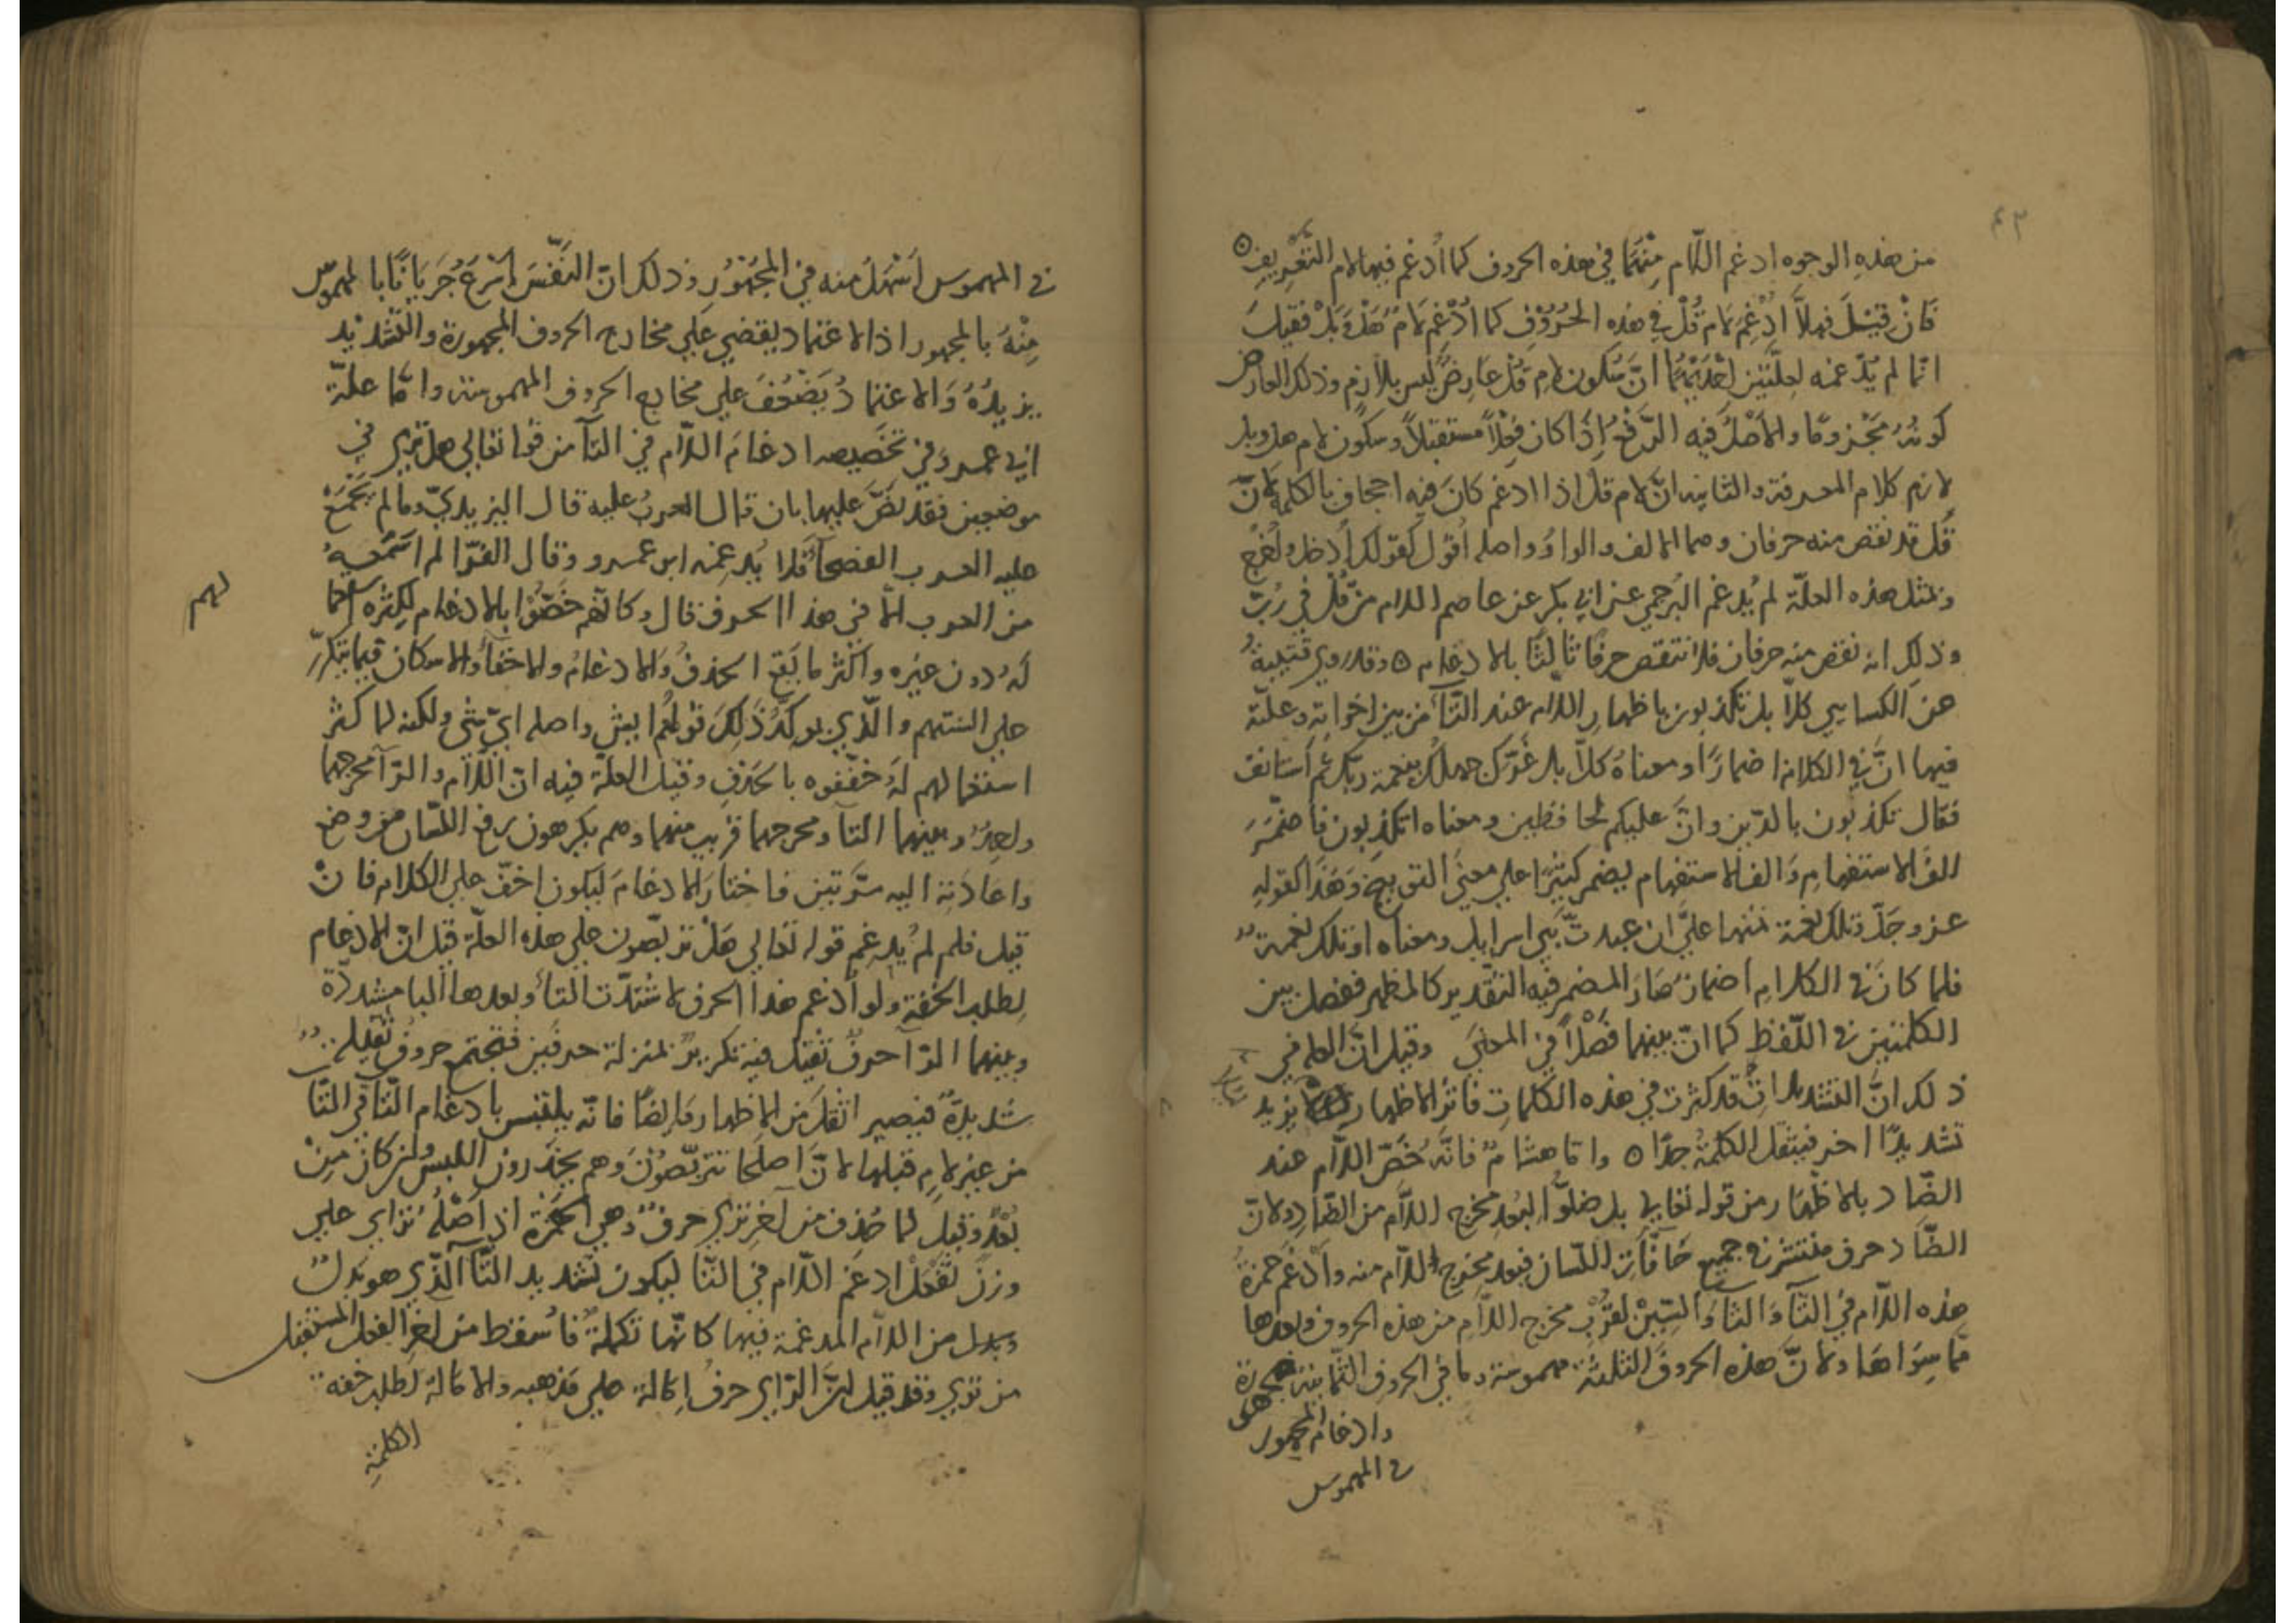 ٤٢
من هذه الوجوه ادغم اللّام منهما في هذه الحروف كما أدغم فيها لام التّعريف ه
فان قيل فهلاّ ادغم لام قُلْ في هذه الحُرُوْفِ كما ادْغِم لامُ هَلْ وَ بَلْ فقيل
انّما لم يُدّغمه لعلّتين احْدَيهُما انّ سُكون لام قُلْ عارضٌ ليس بلازم وذلك العارض
كونُهُ مجْزومًا والأصْلُ فيه الرّفعُ إذا كان فِعْلاً مستقبلاً وسكون لام هل وبل
لازم كلام المعرفة والثانيه انّ لام قل اذا ادغم كان فيه احجاف بالكلمة لانّ
قُل قد نقص منه حرفان وهما الالف والواو واصله أقوُل كقولك أدخل واُخرج
وبمثل هذه العلّة لم يُدغم البُرجمي عن ابي بكر عن عاصم اللام من قُلْ في رُبّ
وذلك انه نقص منه حرفان فلا تنقص حرفًا ثالثًا بالادغام ه وقد روي قتيبةُ
عن الكسايي كلاّ بل تكذبون باظهار اللام عند التّاء من بين اخواته وعلّته
فيها انّ في الكلام اضمارًا ومعناهُ كلاّ بل غرّكن جهلك بنعمة ربّك ثم أستانف
فقال تكذبون بالدّين وانّ عليكم لحافظين ومعناه اتكذبون فاضمر
الف الاستفهام والف الاستفهام يضمر كثيرًا علي معنَي التوبيخ وهذا كقوله
عز وجلّ وتلك نعمة تمنها عليَّ ان عبدتّ بَني اسرايل ومعناه اوتلك نعمةٌ
فلما كان في الكلام اضمارٌ صَارَ المضمر فيه التّقدير كالمظهر ففصل بين
الكلمتين في اللّفظ كما انّ بينهما فَصْلاً في المعنَي وقيل انّ العلة في
ذلك انّ التشديدات قد كثرت في هذه الكلمات فاثر الاظهار يزيد
تشديدًا اخر فيثقل الكلمةُ جدًّا ه وامّا هشامٌ فانّه خَصّ اللّام عند
الضّاد بالاظهار من قوله تعالي بل ضلّوا لبُعدِ مخرج اللّام من الضّاد ولانّ
الضّاد حرف منتشر في جميع حَافَّاتِ اللّسان فبعد مخرج اللّام منه وأدْغم حمزةُ
هذه اللّام في التّآ وَ الثّآ وَ السّيْن لقُرْبِ مخرج اللّام من هذه الحروف وبعدها
ممّا سِوَاهَا ولانّ هذه الحروفَ الثلثة مهموسة وما في الحروف الثّمانية مجهورة
وادغام المجهور
في المهموس
في المهموس اَسْهَلُ منه في المجْهُوْرِ وذلك انّ النّفَسَ اَسْرَعُ جَرَيَانًا بالمهموس
مِنْهُ بالمجهور اذ الاعتماد يقضي علي مخارج الحروف المجهورة والتّشديد
يزيدُهُ وَالاعتمادُ يَضعُفُ علي مخارج الحروف المهموسة وامّا علّة
ابي عمرو في تخصيصه ادغامَ اللّام في التّآ من قوله تعالي هل تري في
موضعين فقد نصَّ عليها بان قال العربُ عليه قال اليزيديّ وما لم يجْمَعْ
عليه العرب الفصحآءُ فلا يُدغمه ابن عمرو وقال الفرّا لم اسْمعهُ
من العرب الّا في هذا الحرف قال وكانّهم خصّوا بالادغام لكثرة استعما
لهم
لَهُ دون غيره واكثر ما يَقع الحذفُ والادغامُ والاخفآءُ والاسكان فيما يتكرّر
علي السنتهم والّذي يوكّدُ ذلِكَ قولهُم ايش واصله ايّ شيٍ ولكنه لما كثر
استعمالهم لَهُ خفّفوه بالحذفِ وقيل العلّة فيه انّ اللّام والرّآ مخرجهما
واحِدٌ وبينهما التآ ومخرجهما قريب منهما وهم يكرهون رفع اللّسان من موضع
واعادته اليه مرّتين فاختارَ الادغامَ ليكون اخفّ علي الكلام فانْ
قيل فلم لم يُدغم قوله تعالي هَلْ تربّصون علي هذه العلّة قيل انّ الادغام
لطلب الخفّةِ ولو أدغم هذا الحرف لاشتدّت التاء وبعدها البا مشدّدة
وبينهما الرّآ حرفٌ ثقيلٌ فيه تكريرٌ بمنزلة حرفين فتجتمع حروفٌ ثقيلةٌ
شديدةٌ فيصير اثقل من الاظهار وايضًا فانّه يلتبس بادغام التّا في التّا
من غير لامٍ قبلها لانّ اصلها تتربّصُوْنَ وهم يحذرون اللبس وان كان مِنْ
بُعْدٍ وقيل لما حُذِف من آخر تري حرفٌ وهي الهمزة اذ اَصْلُهُ تراي علي
وزن تَفْعَلُ ادغم اللّام في التّا ليكون تشديد التّآ الّذي هو بَدَلٌ
وبدل من اللام المدغمة فيها كانّها تكملةٌ فاُسقط من اخر الفعل المستقبل
من تري وقد قيل انّ الرّاي حرفُ اِمَالة علي مذهبه والامالة لطلب خفة
الكلمة